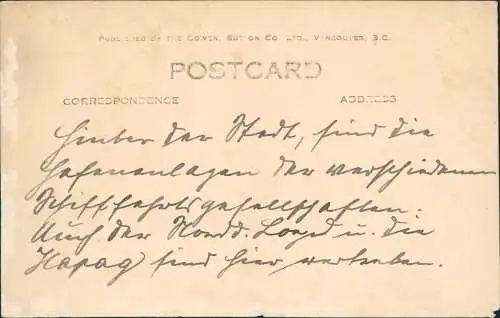 PUBLISHED BY THE GOWEN, SUTTON CO. LTD., VANCOUVER, B.C.
POSTCARD
CORRESPONDENCE ADDRESS
Hinter der Stadt, sind die
Hafenanlagen der verschiedenen
Schifffahrtsgesellschaften.
Auch der Nordd. Loyd u. die
Hapag sind hier vertreten.